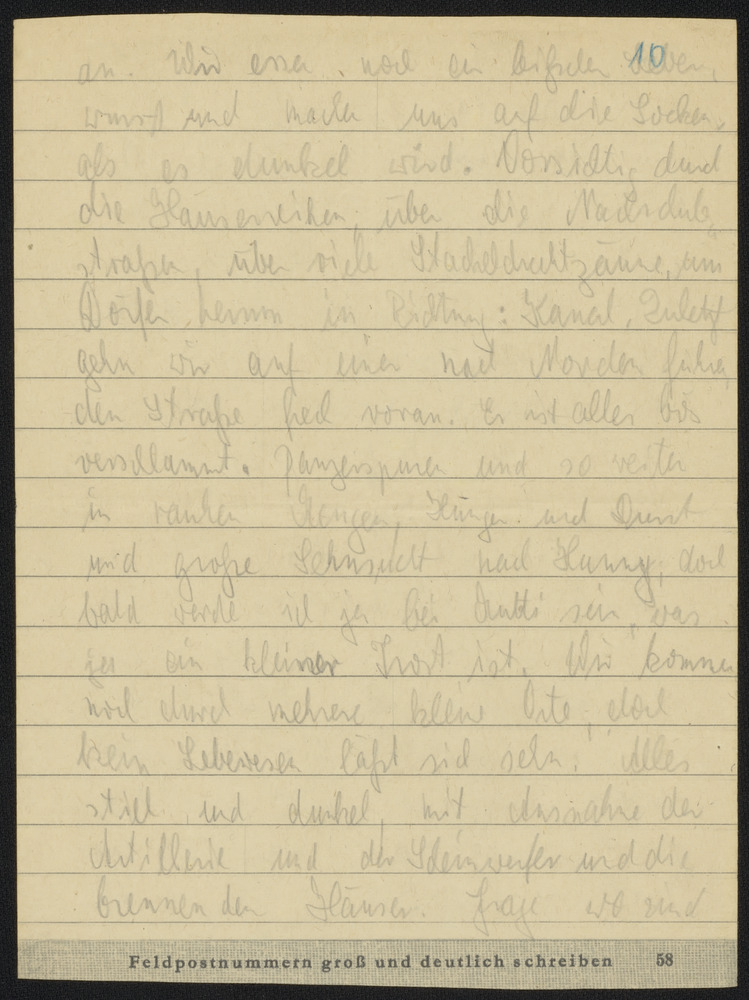 10
an. Wir essen noch ein bißchen Leber-
wurst und machen uns auf die Socken,
als es dunkel wird. Vorsichtig durch
die Häuserreihen, über die Nachschub-
straßen, über viele Stacheldrahtzäune, um
Dörfer herum in Richtung: Kanal. Zuletzt
gehn wir auf einer nach Norden führen
den Straße frech voran. Er ist alles bös
verschlammt. Panzerspuren und so weiter
in rauhen Mengen. Hunger und Durst
und große Sehnsucht nach Hanny, doch
bald werde ich ja bei Mutti sein, was
ja ein kleiner Trost ist. Wir kommen
noch durch mehrere kleine Orte, doch
kein Lebewesen läßt sich sehn. Alles
still und dunkel, mit Ausnahme der
Artillerie und der Steinwerfer und die
brennenden Häuser. Frage wo sind
Feldpostnummern groß und deutlich schreiben 58